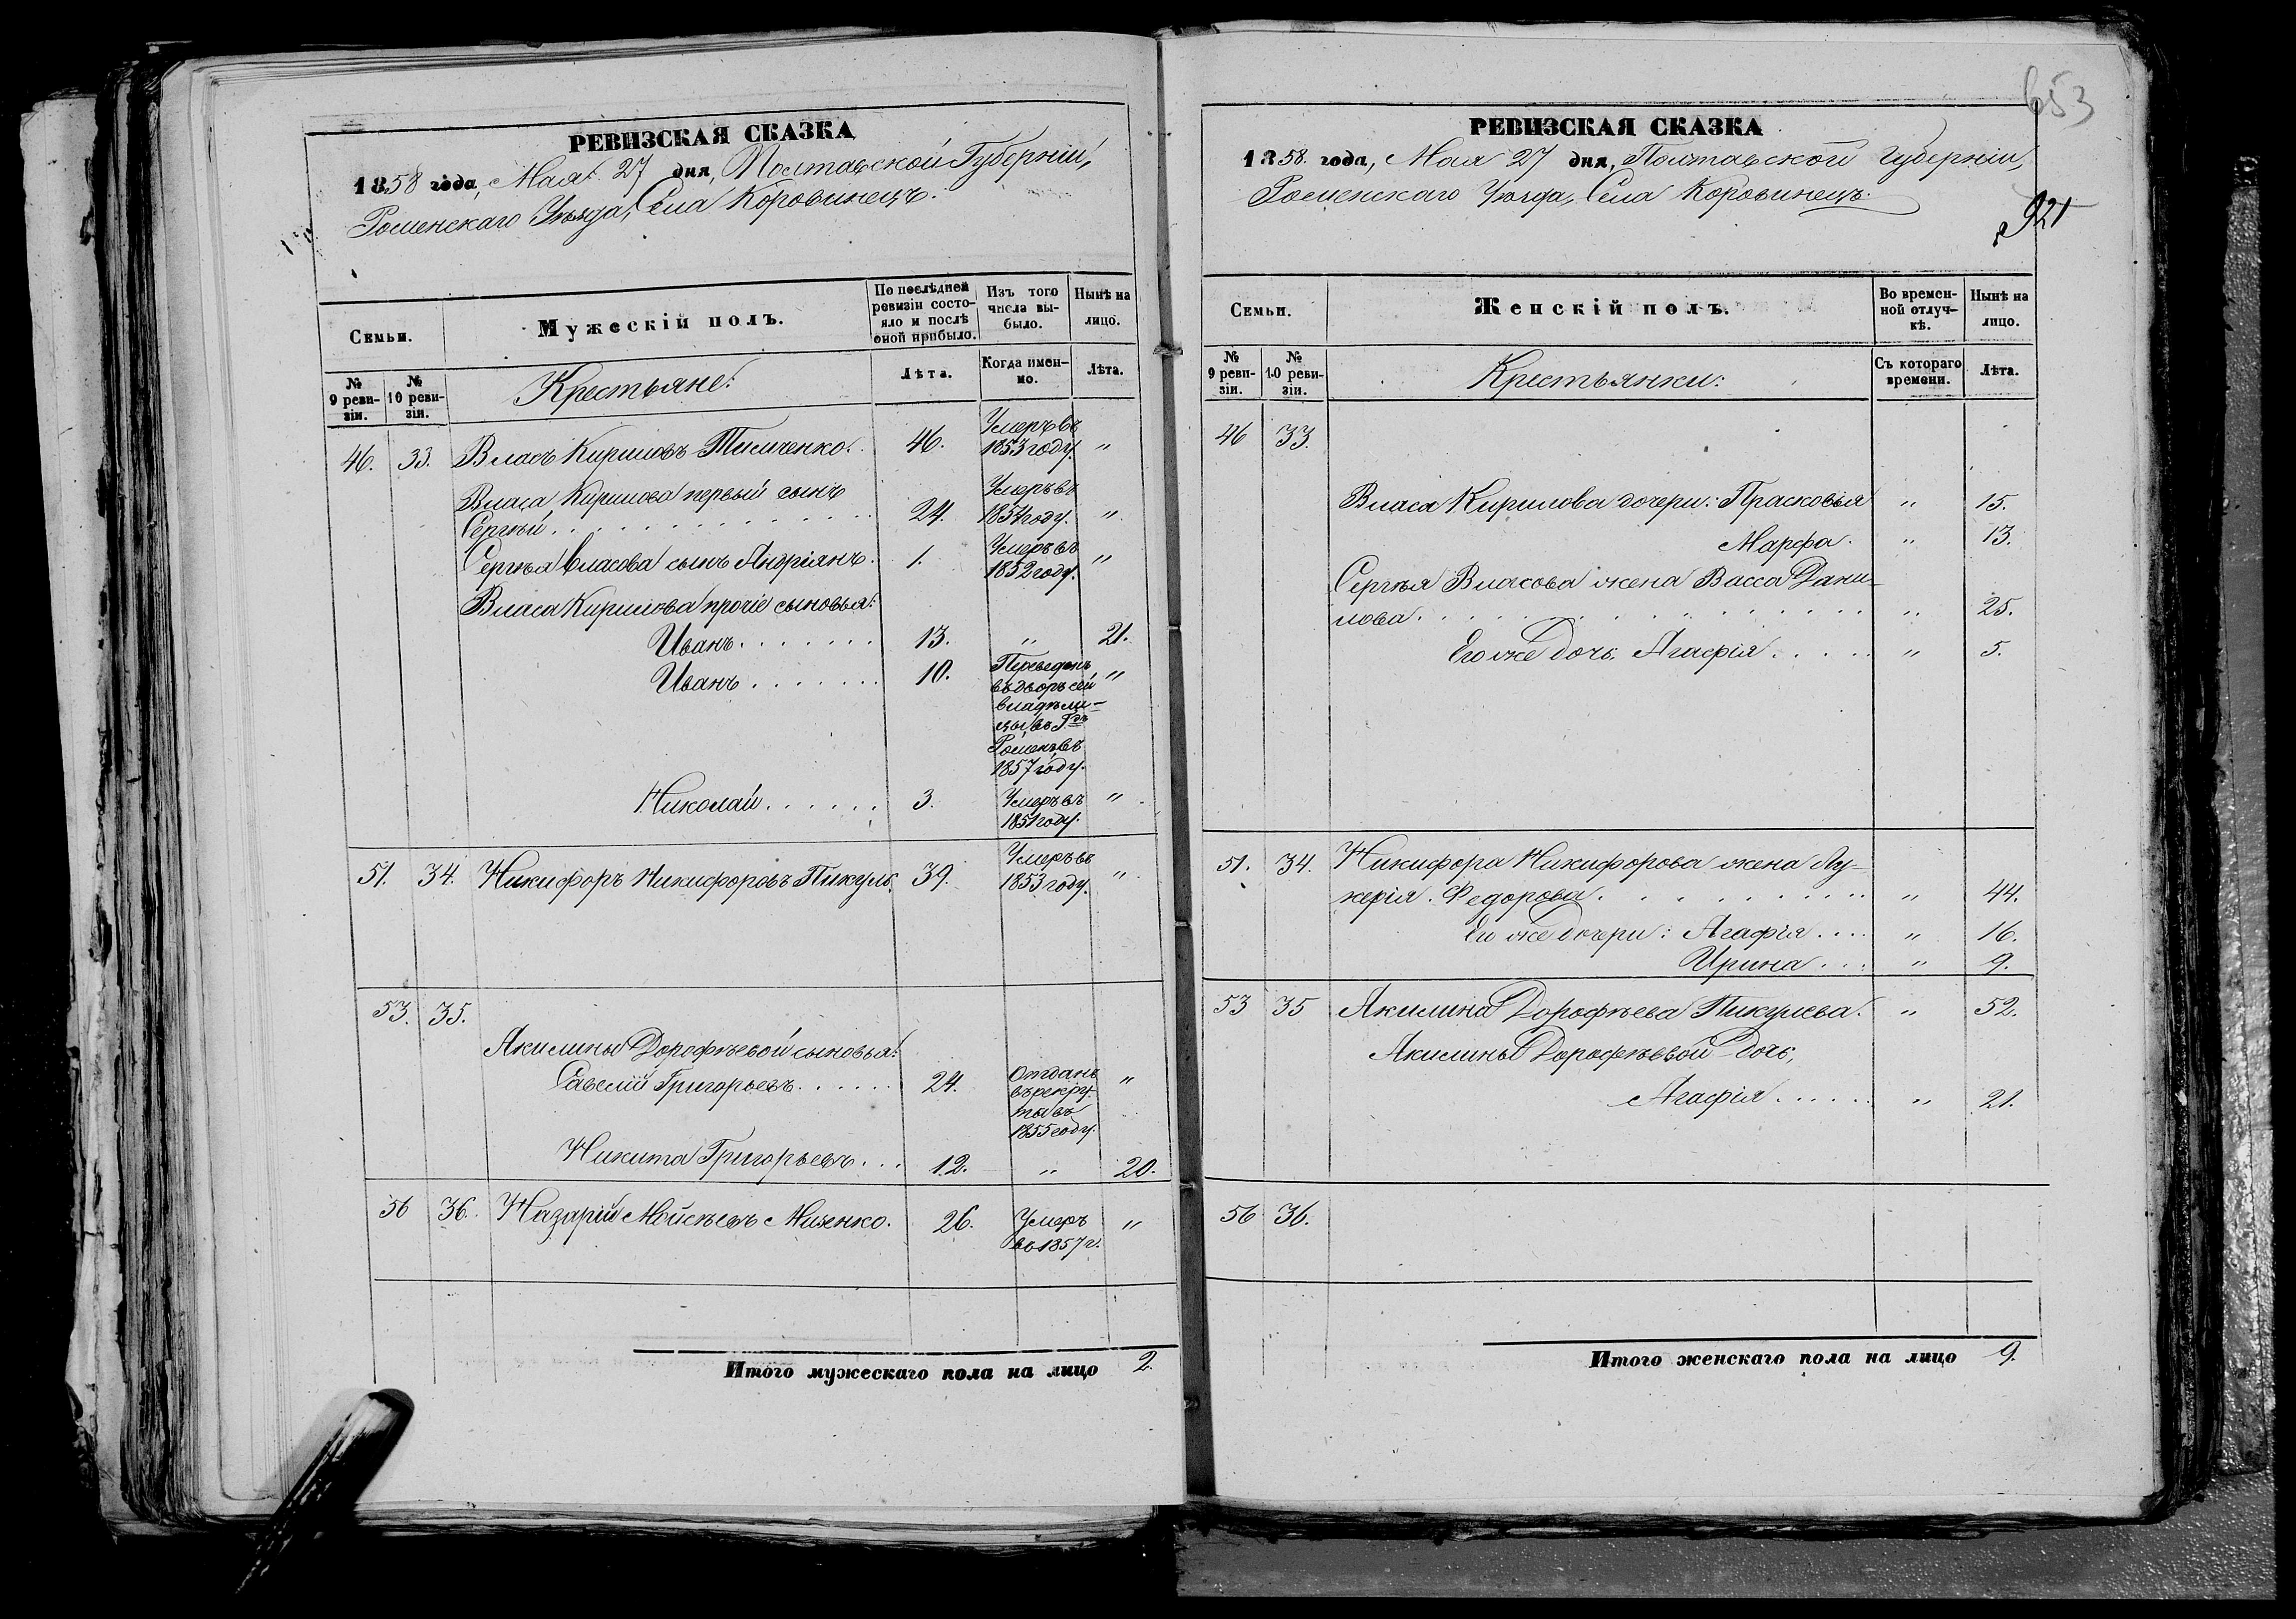 РЕВИЗСКАЯ СКАЗКА
1858 года, Мая 27 дня, Полтавской Губерніи,
Роменскаго Уѣзда, Села Коровинецъ.
Семьи.
Мужескій полъ.
По послѣдней ревизіи состо-
яло и послѣ оной прибыло.
Изъ того числа вы-
было.
Нынѣ на лицо.
№ 9 реви-
зіи.
№ 10 реви-
зіи.
Крестьяне:
Лѣта.
Когда имен-
но.
Лѣта.
46. 33. Власъ Кириловъ Тимченко. 46. Умеръ въ 1853 году. "
Власа Кирилова первый сынъ
Сергѣй. 24. Умеръ въ 1854 году. "
Сергѣя Власова сынъ Андріянъ. 1. Умеръ въ 1852 году. "
Власа Кирилова прочіе сыновья:
Иванъ 13. " 21.
Иванъ 10. Переведенъ "
въ дворъ сей
владѣли-
цы, въ Г.
Роменъ, въ
1857 году.
Николай 3. Умеръ въ 1851 году. "
51. 34. Никифоръ Никифоровъ Пикуль. 39. Умеръ въ 1853 году. "
53. 35.
Акилины Дорофѣевой сыновья:
Савелій Григорьевъ 24. Отданъ "
въ рекру-
ты въ
1855 году.
Никита Григорьевъ 12. " 20.
56 36. Назарій Мойсѣевъ 26. Умеръ "
въ 1857 г.
Итого мужескаго пола на лицо 2.
653
РЕВИЗСКАЯ СКАЗКА
1858. года, Мая 27 дня, Полтавской Губерніи,
Роменскаго Уѣзда, Села Коровинецъ.
921
Семьи.
Женскій полъ.
Во времен-
ной отлуч-
кѣ.
Нынѣ на лицо.
№ 9 реви-
зіи.
№ 10 реви-
зіи.
Крестьянки:
Съ котораго времени.
Лѣта.
46 33.
Власа Кирилова дочери: Прасковья " 15.
Марфа. " 13.
Сергѣя Власова жена Васса Дани-
лова. " 25.
Его же дочь Агафія " 5.
51. 34. Никифора Никифорова жена Лу-
керія Федорова " 44.
Его же дочери: Агафія " 16.
Ирина " 9.
53 35 Акилина Дорофѣева Пикулева. " 52.
Акилины Дорофѣевой дочь,
Агафія " 21.
56 36.
Итого женскаго пола на лицо 9.